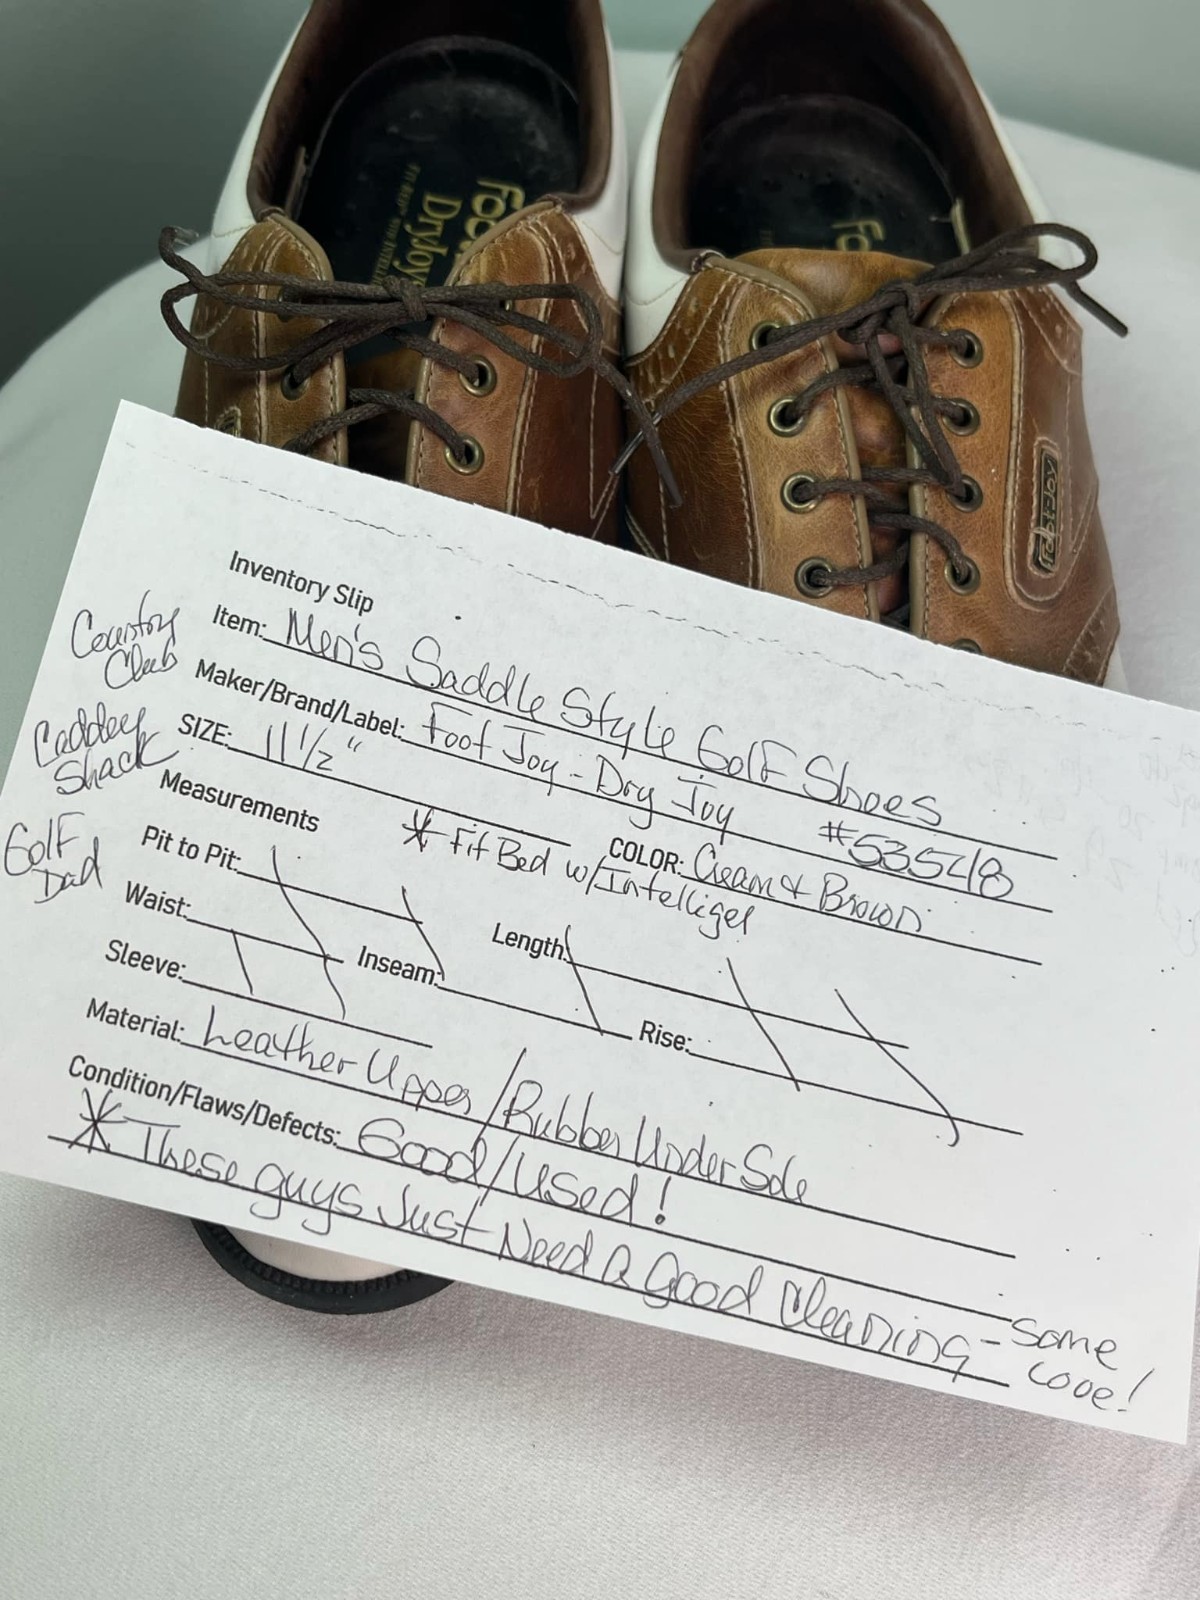 Foo
DryJoys
Fo
FOOTJOY
Inventory Slip
Item: Men's Saddle Style Golf Shoes
Maker/Brand/Label: Foot Joy - Dry Joy #53548
SIZE: 11 1/2" COLOR: Cream & Brown
* Fit Bed w/Intelligel
Measurements
Pit to Pit: Length:
Waist: Inseam: Rise:
Sleeve:
Material: Leather Upper/Rubber Under Sole
Condition/Flaws/Defects: Good/Used!
* These guys Just Need A Good Cleaning - Some
Love!
Country
Club
Caddey
Shack
Golf
Dad